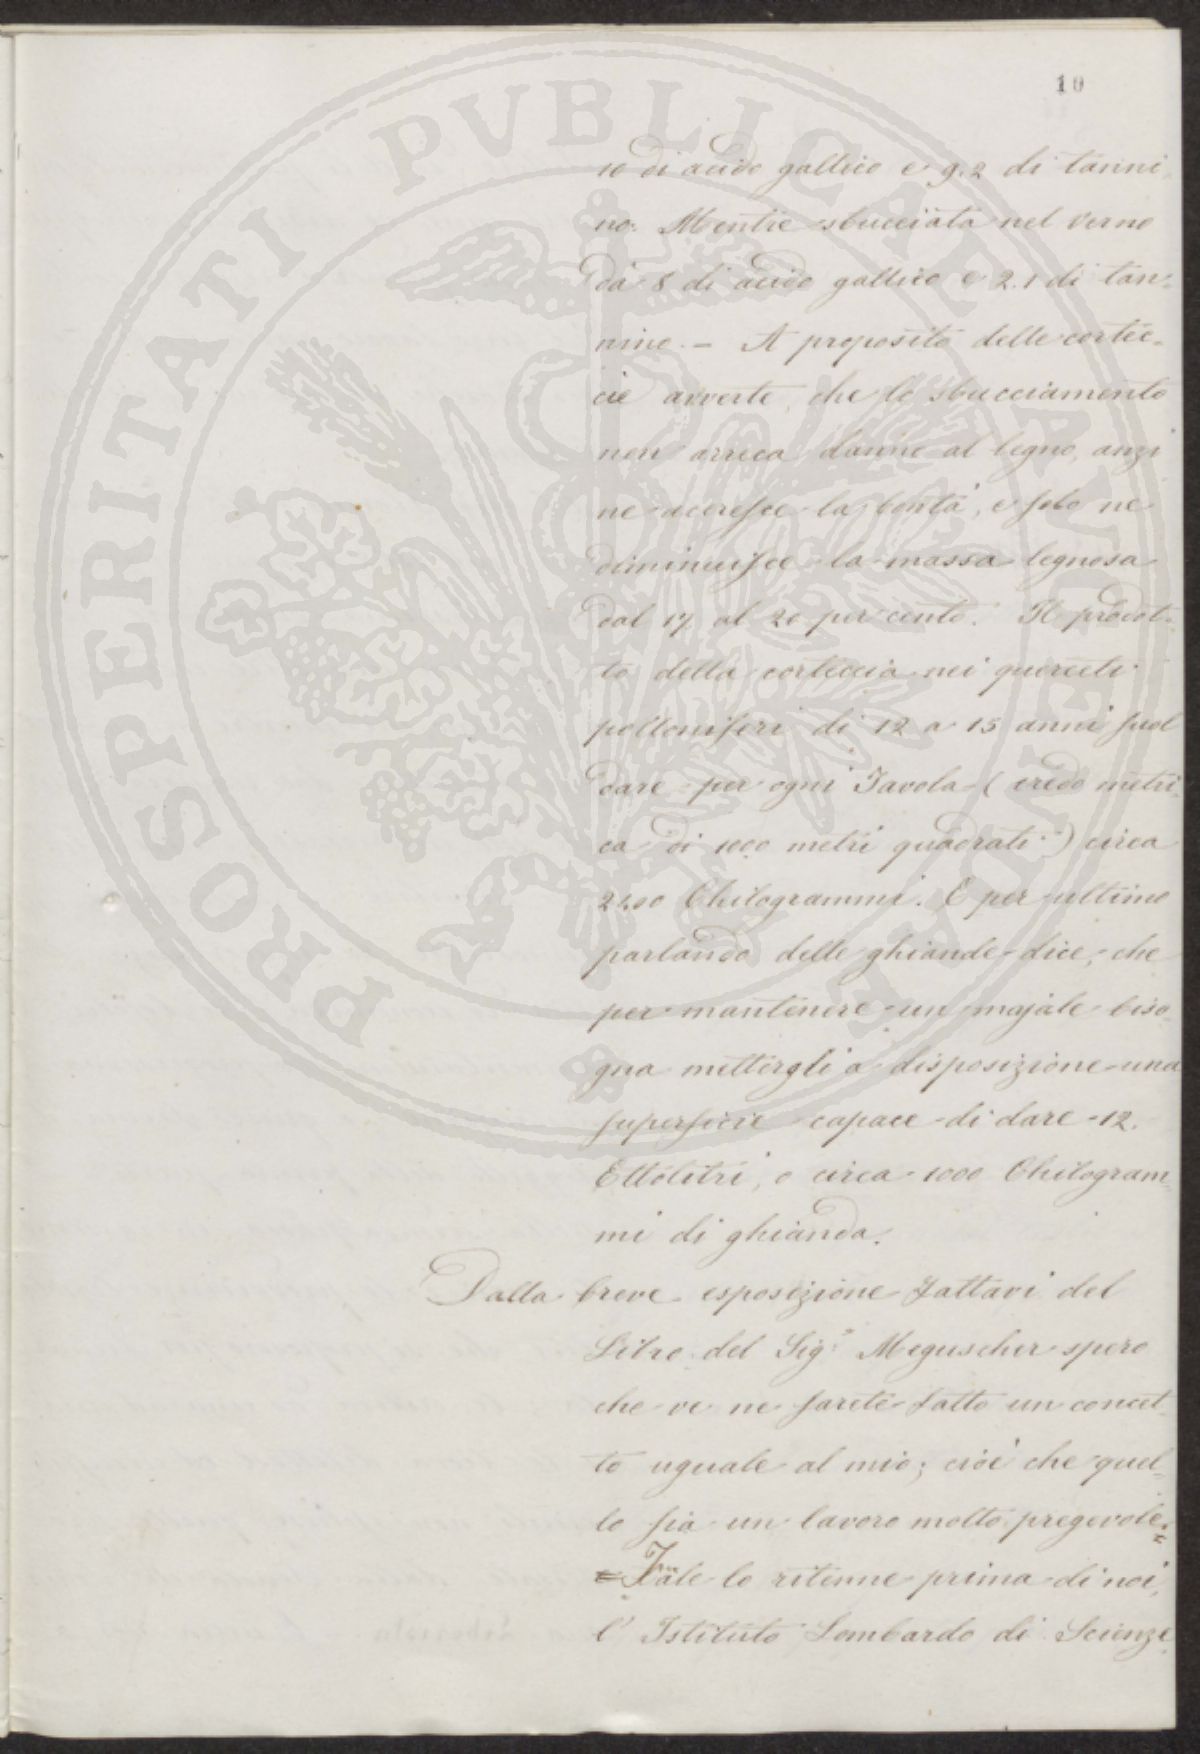 10
10 di acido gallico e g. 2 di tanni-
no. Mentre sbucciata nel verno
dà 8 di acido gallico e 2.1 di tan-
nino. - A proposito delle cortec-
cie avverte, che lo sbucciamento
non arreca danno al legno, anzi
ne accresce la bontà, e solo ne
diminuisce la massa legnosa
dal 17 al 20 per cento. Il prodot-
to della corteccia nei querceti
polloniferi di 12 a 15 anni suol
dare per ogni Tavola (credo metri-
ca di 1000 metri quadrati) circa
Chilogrammi. E per ultimo
parlando delle ghiande dice, che
per mantenere un majale biso-
gna mettergli a disposizione una
superficie capace di dare 12.
Ettolitri, o circa 1000 Chilogram-
mi di ghianda.
Dalla breve esposizione fattavi del
Libro del Sig.r Meguscher spero
che ve ne sarete fatto un concet-
to uguale al mio; cioè che quel-
lo sia un lavoro molto pregevole.
Tale lo ritenne prima di noi,
l'Istituto Lombardo di Scienze
PROSPERITATI PVBLICAE AVGENDAE